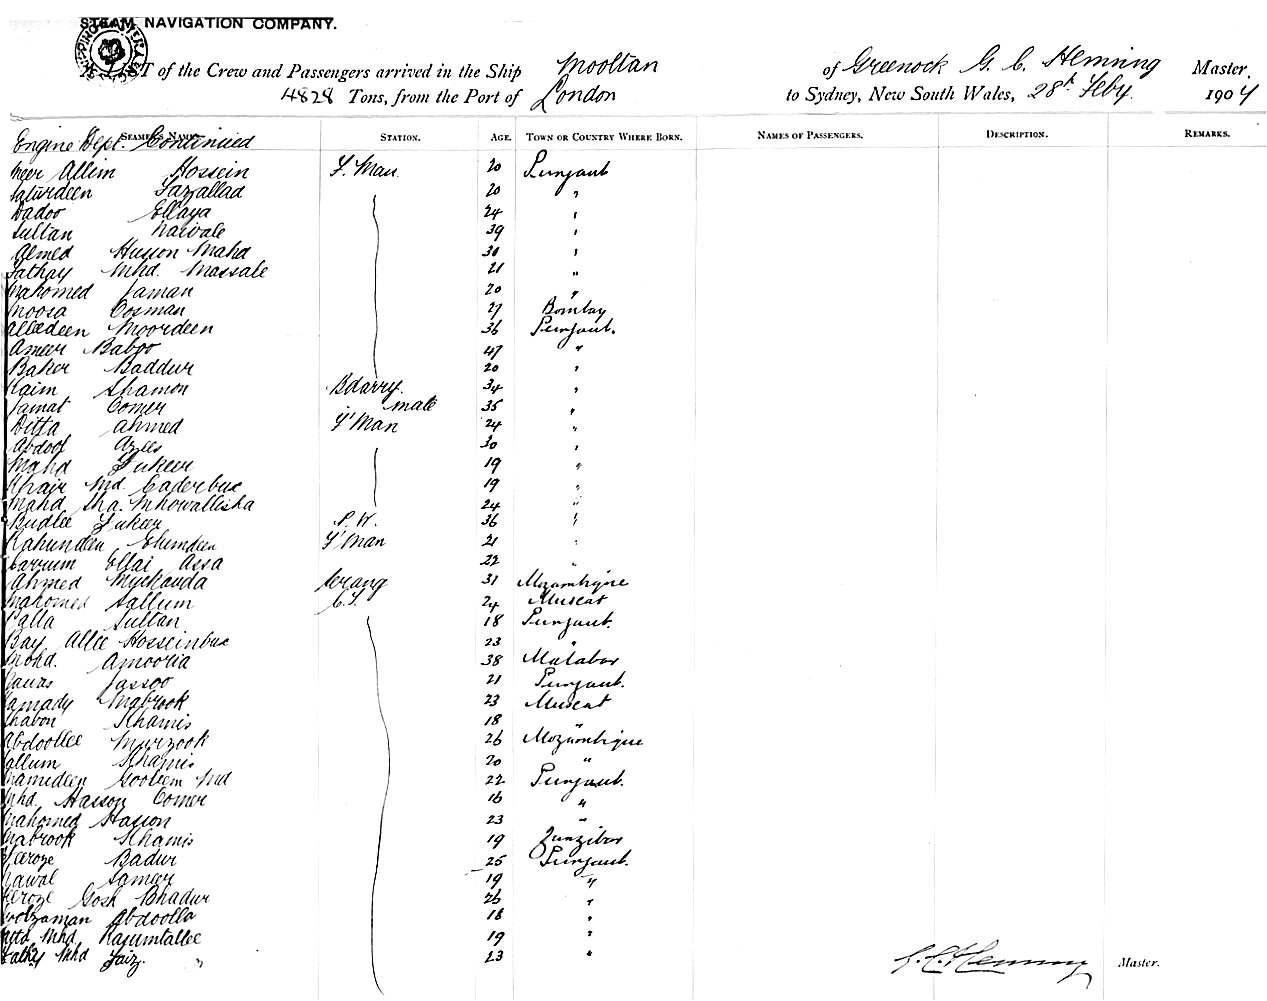 STEAM NAVIGATION COMPANY.
LIST of the Crew and Passengers arrived in the Ship Mooltan of Greenock G. C. Henning Master.
4828 Tons, from the Port of London to Sydney, New South Wales, 28th Feby. 1904
SEAMEN'S NAMES. STATION. AGE. TOWN OR COUNTRY WHERE BORN. NAMES OF PASSENGERS. DESCRIPTION. REMARKS.
Engine Dept. Continued
Meer Allim Hossein F. Man 20 Punjaub
Fazallad 20 "
Dadoo Ellaya 24 "
Sultan Naivale 39 "
Ahmed Husson Mahd 30 "
Fathay Mhd. Massale 21 "
Mahomed Jaman 20 "
Moosa Oosman 27 Bombay
Alledeen Moordeen 36 Punjaub.
Ameer Baboo 47 "
Baker Baddur 20 "
Kaim Shamon Bdarry. 34 "
Jamat Comer " mate 35 "
Ditta Ahmed F'Man 24 "
Abdool Azees 30 "
Mahd Fukeer 19 "
Khair Md. Caderbux 19 "
Mahd Sha. Mhowallisha 24 "
Budlee Fukeer P. W. 36 "
Elumdeen F'Man 21 "
Ellai Assa 22 "
Ahmed Myckauda Serang 31 Mozambique
Mahomed Sallum C.T. 24 Muscat
Palla Sultan 18 Punjaub.
Bay Allee Hosseinbux 23 "
Mohd. Amooria 38 Malabar
Jassoo 21 Punjaub.
Hamady Mabrook 23 Muscat
Shabon Khamis 18 "
Abdoollee Murzook 26 Mozambique
Sallum Khamis 20 "
Gooliem Md 22 Punjaub.
Mhd. Hasson Comer 16 "
Mahomed Hasson 23 "
Mabrook Khamis 19 Zanzibar
Feroze Badur 25 Punjaub.
Nawal Sameer 19 "
Feroze Gosh Bhadur 26 "
Goolzaman Abdoolla 18 "
Mhd Kasumtallee 19 "
Fathy Mhd Faiz. 23 "
G. C. Henning Master.